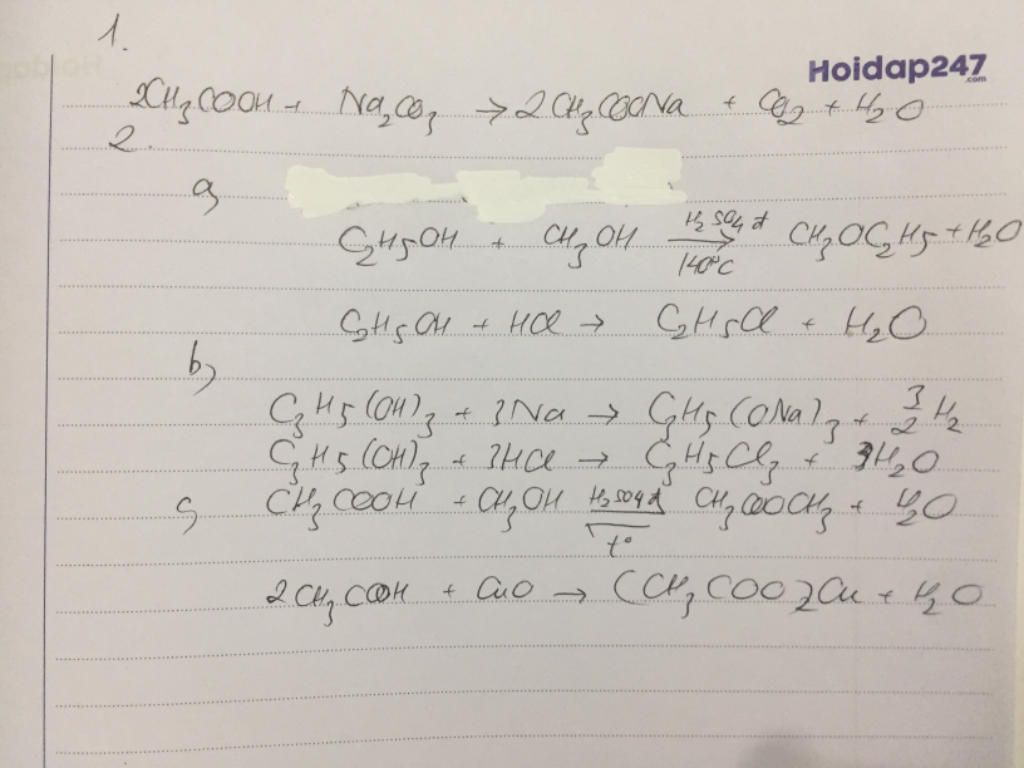 1.
Hoidap247
.com
2CH₃COOH + Na₂CO₃ → 2CH₃COONa + CO₂ + H₂O
2.
a,
C₂H₅OH + CH₃OH H₂SO₄ đ → 140°C CH₃OC₂H₅ + H₂O
C₂H₅OH + HCl → C₂H₅Cl + H₂O
b,
C₃H₅(OH)₃ + 3Na → C₃H₅(ONa)₃ + 3/2 H₂
C₃H₅(OH)₃ + 3HCl → C₃H₅Cl₃ + 3H₂O
c, CH₃COOH + CH₃OH H₂SO₄ đ ⇌ t° CH₃COOCH₃ + H₂O
2CH₃COOH + CuO → (CH₃COO)₂Cu + H₂O